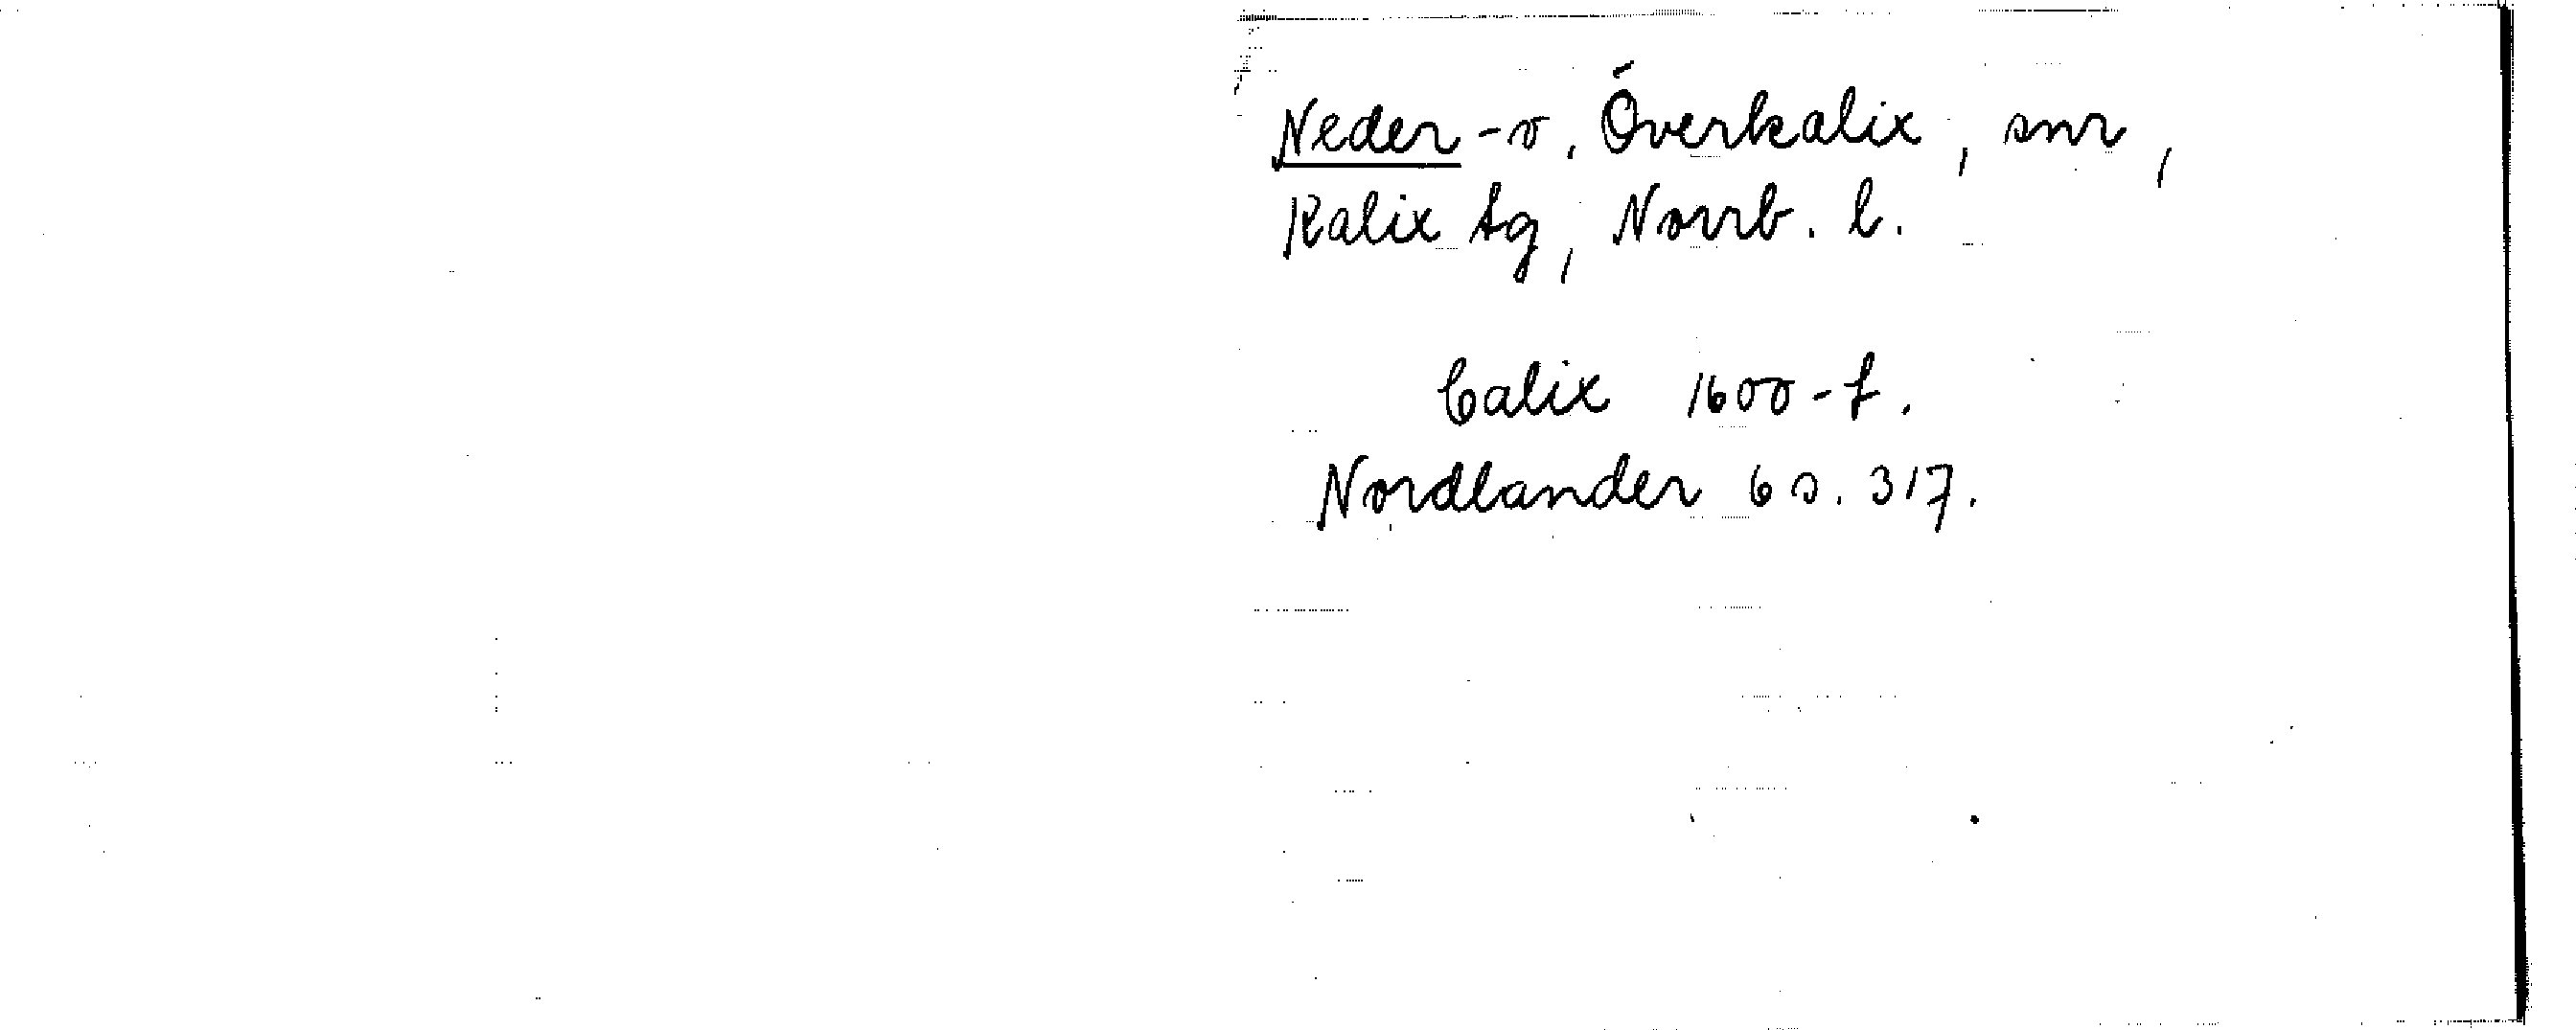 Neder -o. Överkalix, snr,
Kalix tg, Norrb. l.
Calix 1600-t.
Nordlander 6 s. 317.